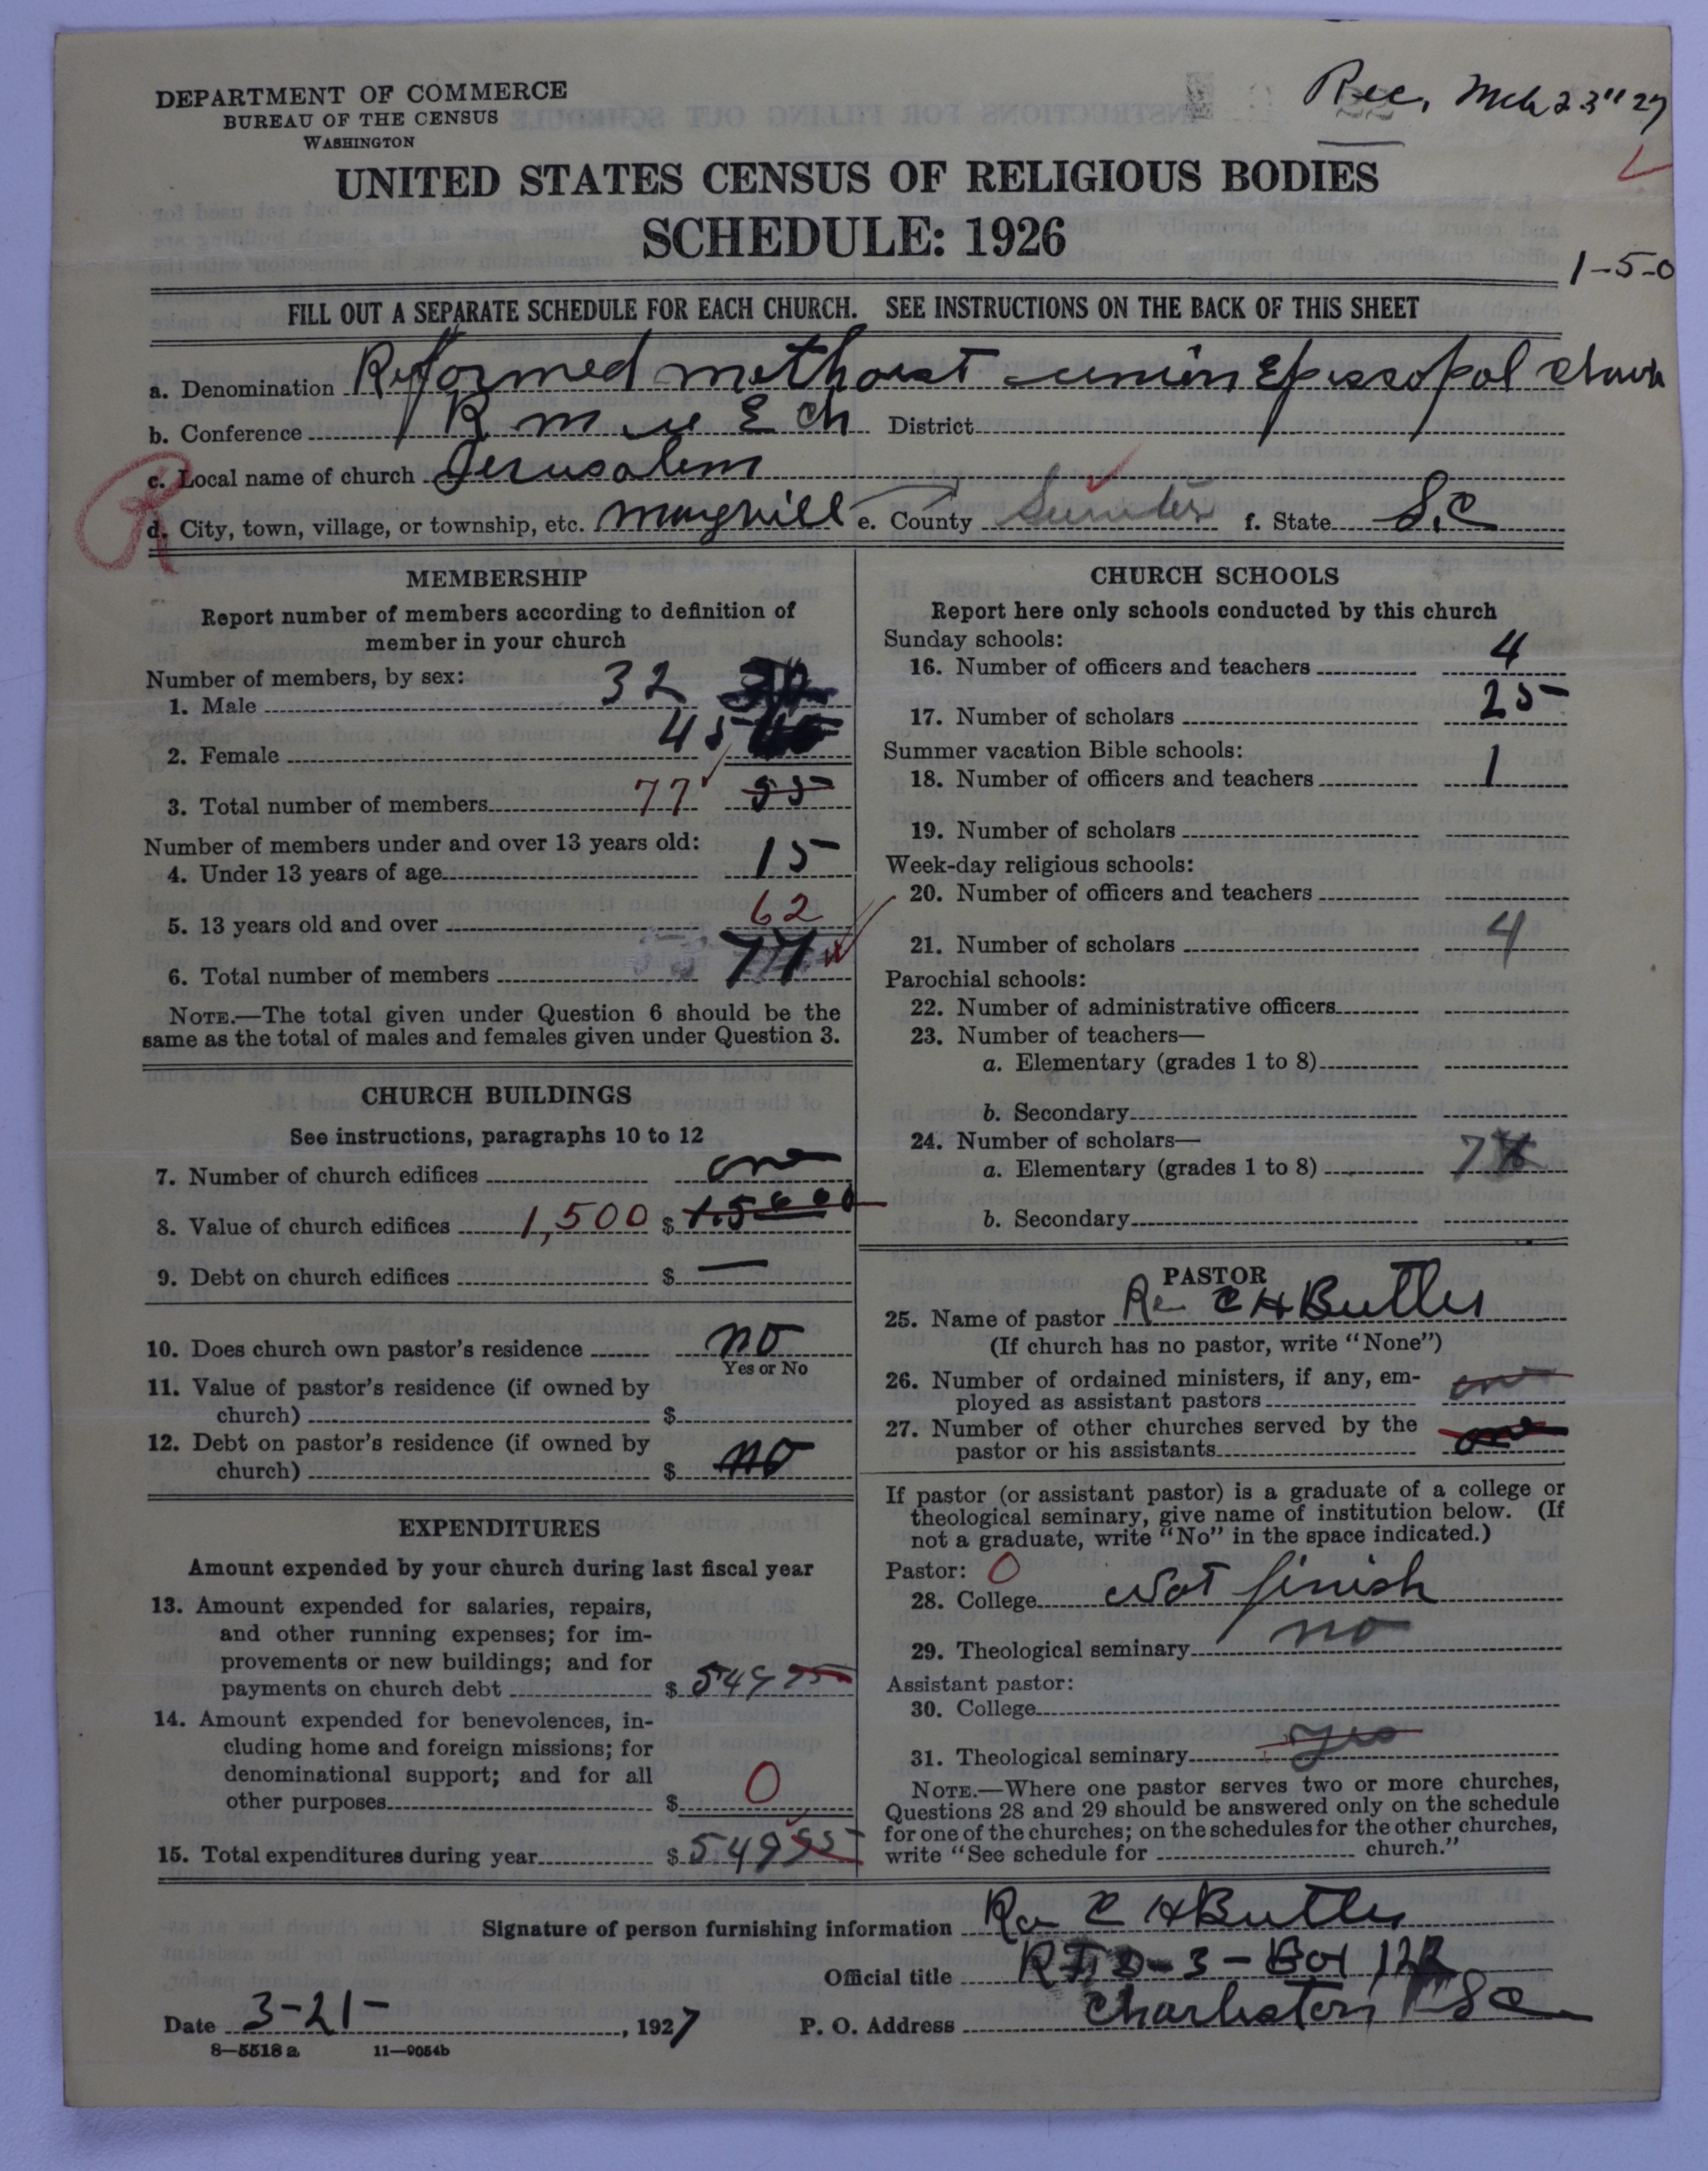 DEPARTMENT OF COMMERCE
BUREAU OF THE CENSUS
WASHINGTON
Rec, Mch 23" 27
UNITED STATES CENSUS OF RELIGIOUS BODIES
SCHEDULE: 1926
1-5-0
FILL OUT A SEPARATE SCHEDULE FOR EACH CHURCH. SEE INSTRUCTIONS ON THE BACK OF THIS SHEET
a. Denomination Reformed methoist union Episcopol Church
b. Conference R m u E Ch District
c. Local name of church Jerusalem
d. City, town, village, or township, etc. mayvill e. County Sumter f. State S,C
MEMBERSHIP
Report number of members according to definition of
member in your church
Number of members, by sex:
1. Male 32
2. Female 45
3. Total number of members 77 55
Number of members under and over 13 years old:
4. Under 13 years of age 15
5. 13 years old and over 62
6. Total number of members 77
NOTE.—The total given under Question 6 should be the
same as the total of males and females given under Question 3.
CHURCH BUILDINGS
See instructions, paragraphs 10 to 12
7. Number of church edifices one
8. Value of church edifices 1,500 $
9. Debt on church edifices $ —
10. Does church own pastor's residence no
Yes or No
11. Value of pastor's residence (if owned by
church) $
12. Debt on pastor's residence (if owned by
church) $ no
EXPENDITURES
Amount expended by your church during last fiscal year
13. Amount expended for salaries, repairs,
and other running expenses; for im-
provements or new buildings; and for
payments on church debt $ 549 75
14. Amount expended for benevolences, in-
cluding home and foreign missions; for
denominational support; and for all
other purposes $ 0
15. Total expenditures during year $ 549 95
CHURCH SCHOOLS
Report here only schools conducted by this church
Sunday schools:
16. Number of officers and teachers 4
17. Number of scholars 25
Summer vacation Bible schools:
18. Number of officers and teachers 1
19. Number of scholars
Week-day religious schools:
20. Number of officers and teachers
21. Number of scholars 4
Parochial schools:
22. Number of administrative officers
23. Number of teachers—
a. Elementary (grades 1 to 8)
b. Secondary
24. Number of scholars—
a. Elementary (grades 1 to 8) 7
b. Secondary
PASTOR
25. Name of pastor Re C H Butler
(If church has no pastor, write "None")
26. Number of ordained ministers, if any, em-
ployed as assistant pastors one
27. Number of other churches served by the
pastor or his assistants one
If pastor (or assistant pastor) is a graduate of a college or
theological seminary, give name of institution below. (If
not a graduate, write "No" in the space indicated.)
Pastor: 0
28. College Not finish
29. Theological seminary no
Assistant pastor:
30. College
31. Theological seminary yes
NOTE.—Where one pastor serves two or more churches,
Questions 28 and 29 should be answered only on the schedule
for one of the churches; on the schedules for the other churches,
write "See schedule for church."
Signature of person furnishing information Re C H Butler
Official title RFD-3-Box 122
Date 3-21-, 1927 P. O. Address Charleston, SC
8—5518 a 11—9054b